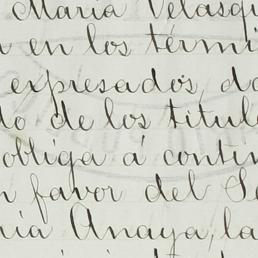 Maria Velasqu
n en los termi
expresados, do
do de los titulo
obliga á contin
n favor del Se
nia Anaya, la